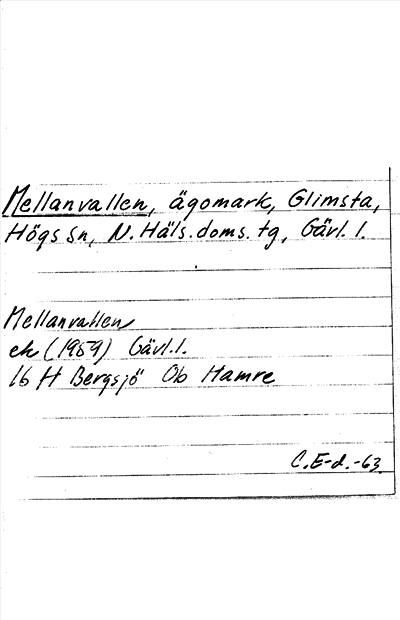 Mellanvallen, ägomark, Glimsta,
Högs sn, N. Häls. doms. tg, Gävl. l.
Mellanvallen
ek (1959) Gävl. l.
16 H Bergsjö Ob Hamre
C.E-d.-63